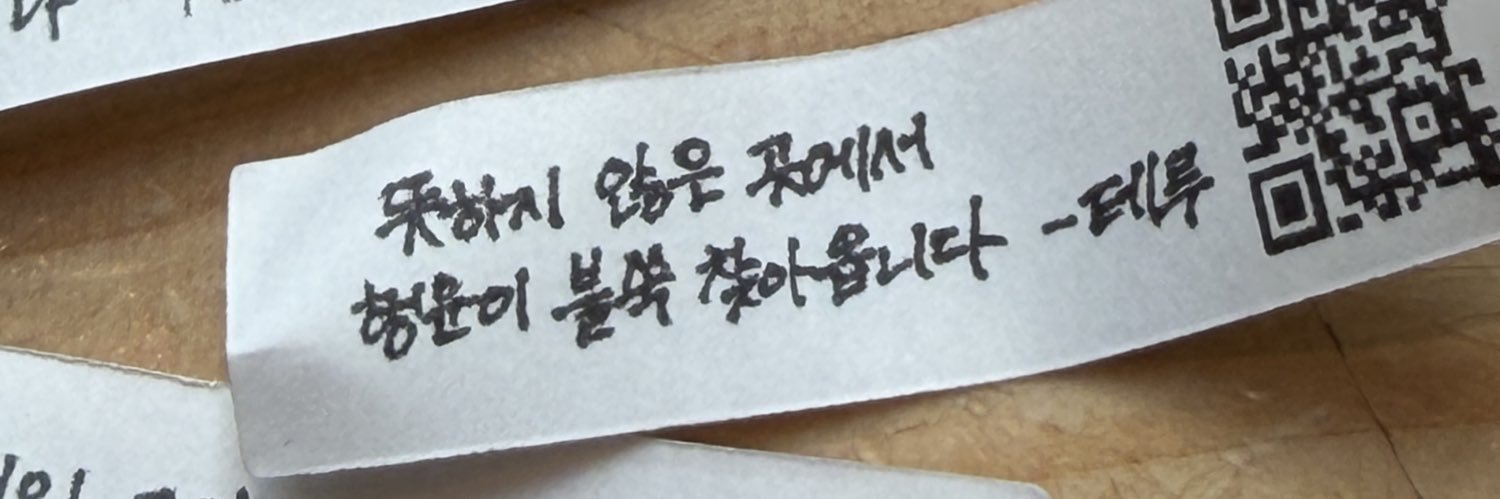 뜻하지 않은 곳에서
행운이 불쑥 찾아옵니다 -테루